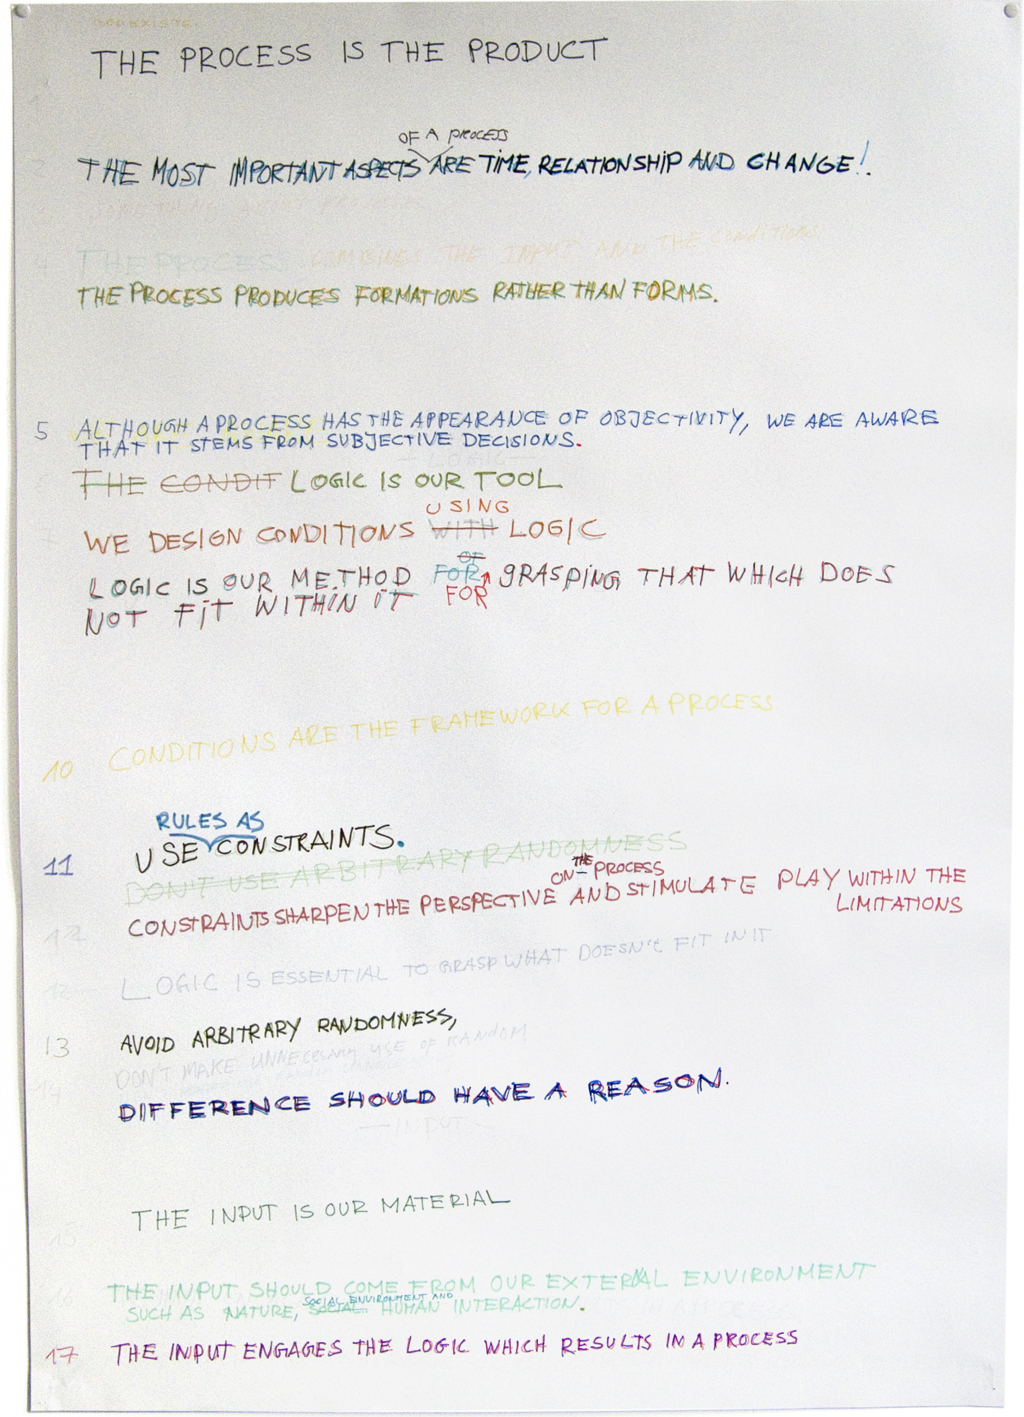 THE PROCESS IS THE PRODUCT
OF A PROCESS
THE MOST IMPORTANT ASPECTS ARE TIME, RELATIONSHIP AND CHANGE!
4 THE PROCESS COMBINES THE INPUT AND THE CONDITIONS
THE PROCESS PRODUCES FORMATIONS RATHER THAN FORMS.
5 ALTHOUGH A PROCESS HAS THE APPEARANCE OF OBJECTIVITY, WE ARE AWARE
THAT IT STEMS FROM SUBJECTIVE DECISIONS.
— LOGIC —
THE CONDIT LOGIC IS OUR TOOL
USING
WE DESIGN CONDITIONS WITH LOGIC
OF
LOGIC IS OUR METHOD FOR GRASPING THAT WHICH DOES
FOR
NOT FIT WITHIN IT
10 CONDITIONS ARE THE FRAMEWORK FOR A PROCESS
RULES AS
11 USE CONSTRAINTS.
DON'T USE ARBITRARY RANDOMNESS
ON THE PROCESS
12 CONSTRAINTS SHARPEN THE PERSPECTIVE AND STIMULATE PLAY WITHIN THE
LIMITATIONS
12 LOGIC IS ESSENTIAL TO GRASP WHAT DOESN'T FIT IN IT
13 AVOID ARBITRARY RANDOMNESS,
DON'T MAKE UNNECESSARY USE OF RANDOM
14 DIFFERENCE SHOULD HAVE A REASON.
— INPUT —
15 THE INPUT IS OUR MATERIAL
16 THE INPUT SHOULD COME FROM OUR EXTERNAL ENVIRONMENT
SOCIAL ENVIRONMENT AND
SUCH AS NATURE, SOCIAL HUMAN INTERACTION.
17 THE INPUT ENGAGES THE LOGIC WHICH RESULTS IN A PROCESS